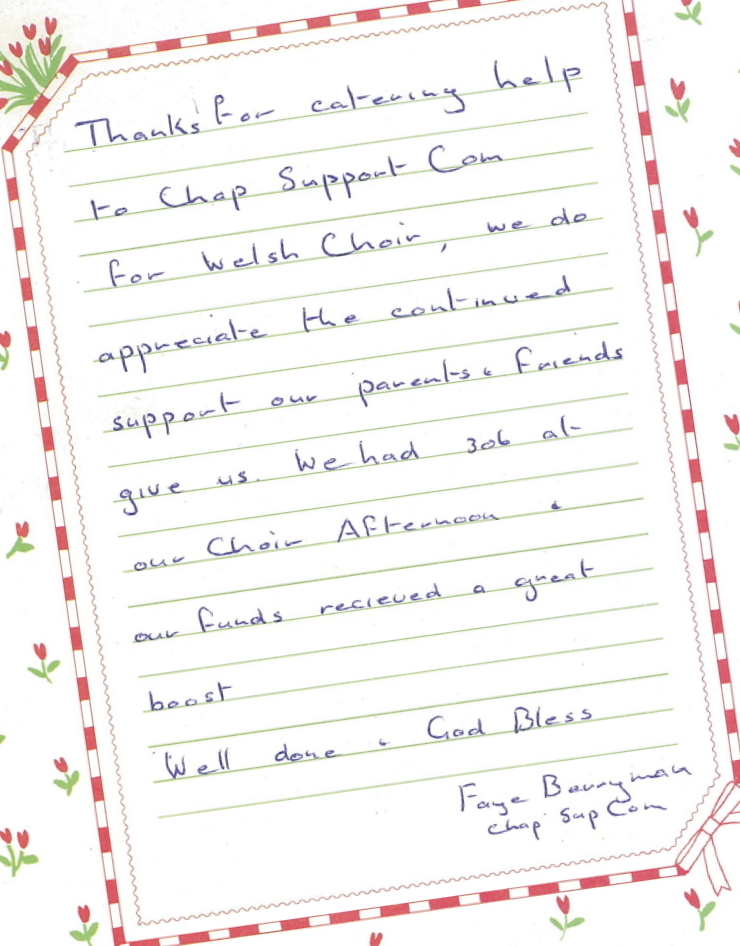 Thanks for catering help
to Chap Support Com
for Welsh Choir, we do
appreciate the continued
support our parents & friends
give us. We had 306 at
our Choir Afternoon &
our funds recieved a great
boost
Well done & God Bless
Faye Berryman
Chap Sup Com